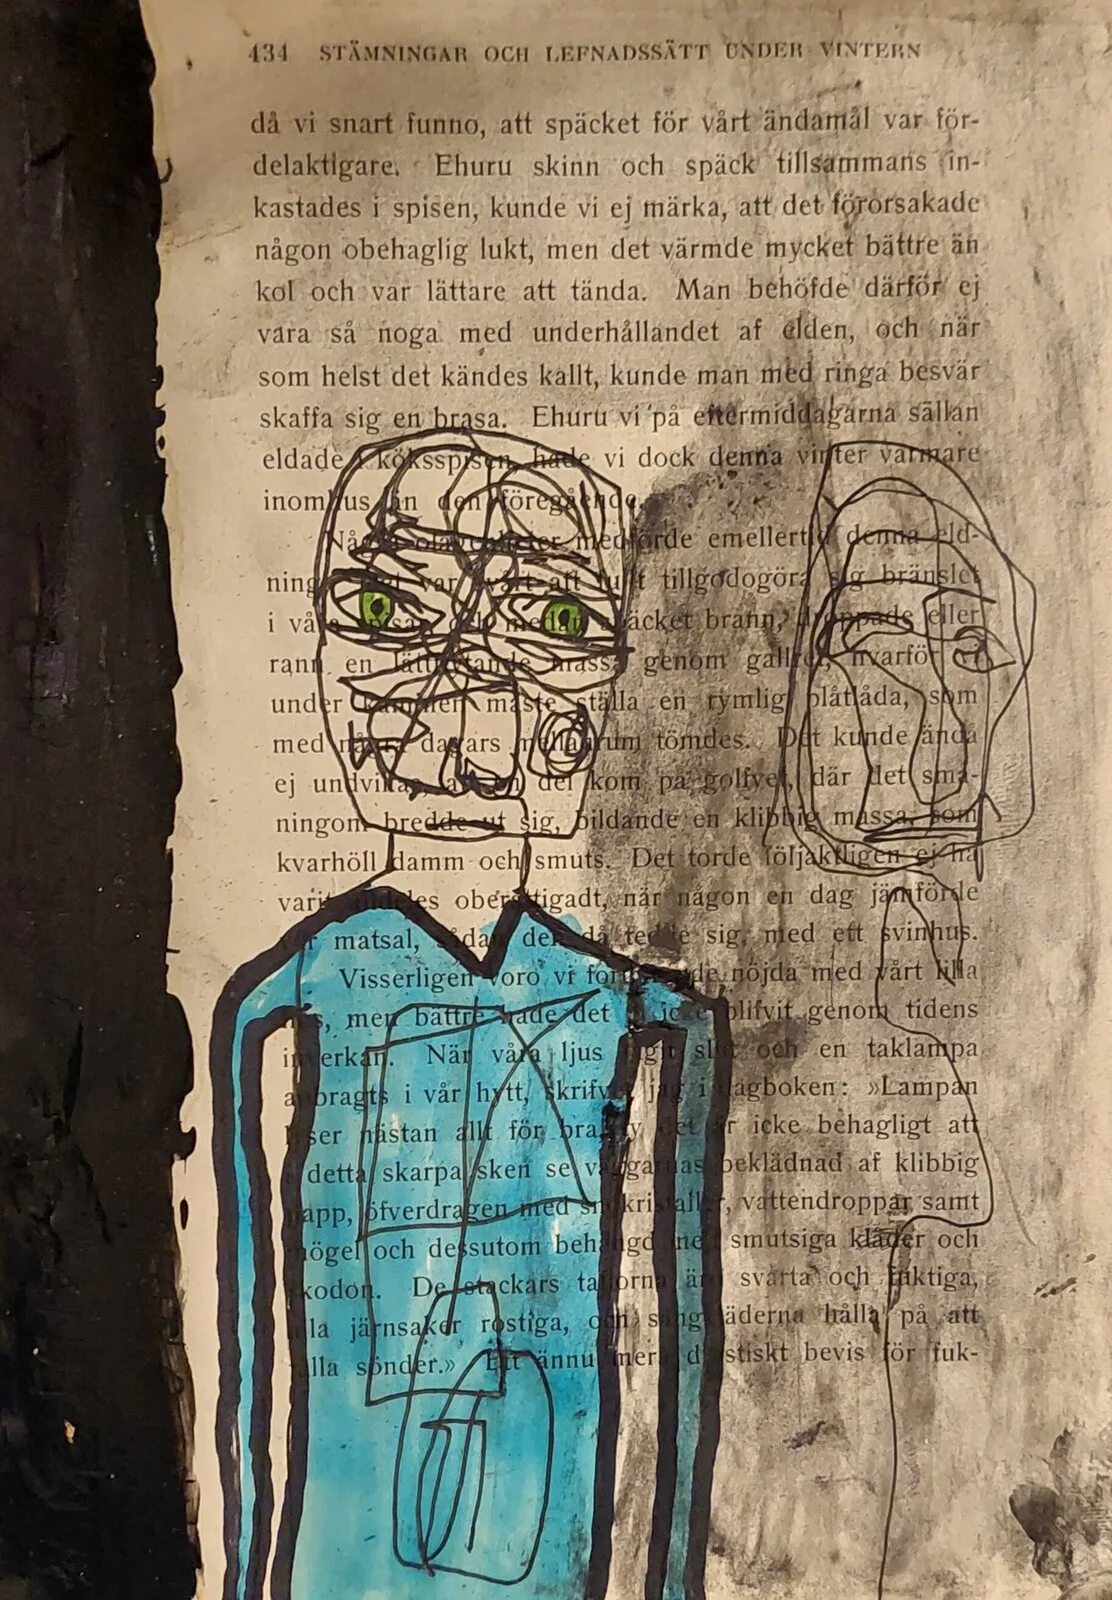 434 STÄMNINGAR OCH LEFNADSSÄTT UNDER VINTERN
då vi snart funno, att späcket för vårt ändamål var för-
delaktigare. Ehuru skinn och späck tillsammans in-
kastades i spisen, kunde vi ej märka, att det förorsakade
någon obehaglig lukt, men det värmde mycket bättre än
kol och var lättare att tända. Man behöfde därför ej
vara så noga med underhållandet af elden, och när
som helst det kändes kallt, kunde man med ringa besvär
skaffa sig en brasa. Ehuru vi på eftermiddagarna sällan
eldade i köksspisen, hade vi dock denna vinter varmare
inomhus än den föregående.
medförde emellertid denna eld-
ning. Det var svårt att fullt tillgodogöra sig bränslet
i våra och medan späcket brann, droppade eller
rann en lättflytande massa genom gallret, hvarför
under kaminen måste ställa en rymlig plåtlåda, som
med några dagars mellanrum tömdes. Det kunde ändå
ej undvikas, att en del kom på golfvet, där det små-
ningom bredde ut sig, bildande en klibbig massa, som
kvarhöll damm och smuts. Det torde följaktligen ej ha
varit alldeles oberättigadt, när någon en dag jämförde
vår matsal, sådan den då tedde sig, med ett svinhus.
Visserligen voro vi fortfarande nöjda med vårt lilla
hus, men bättre hade det icke blifvit genom tidens
inverkan. När våra ljus tagit slut och en taklampa
anbragts i vår hytt, skrifver jag i dagboken: »Lampan
lyser nästan allt för bra, ty det är icke behagligt att
i detta skarpa sken se väggarnas beklädnad af klibbig
papp, öfverdragen med snökristaller, vattendroppar samt
mögel och dessutom behängd med smutsiga kläder och
skodon. De stackars taflorna äro svarta och fuktiga,
alla järnsaker rostiga, och sängkläderna hålla på att
falla sönder.» Ett ännu mera drastiskt bevis för fuk-